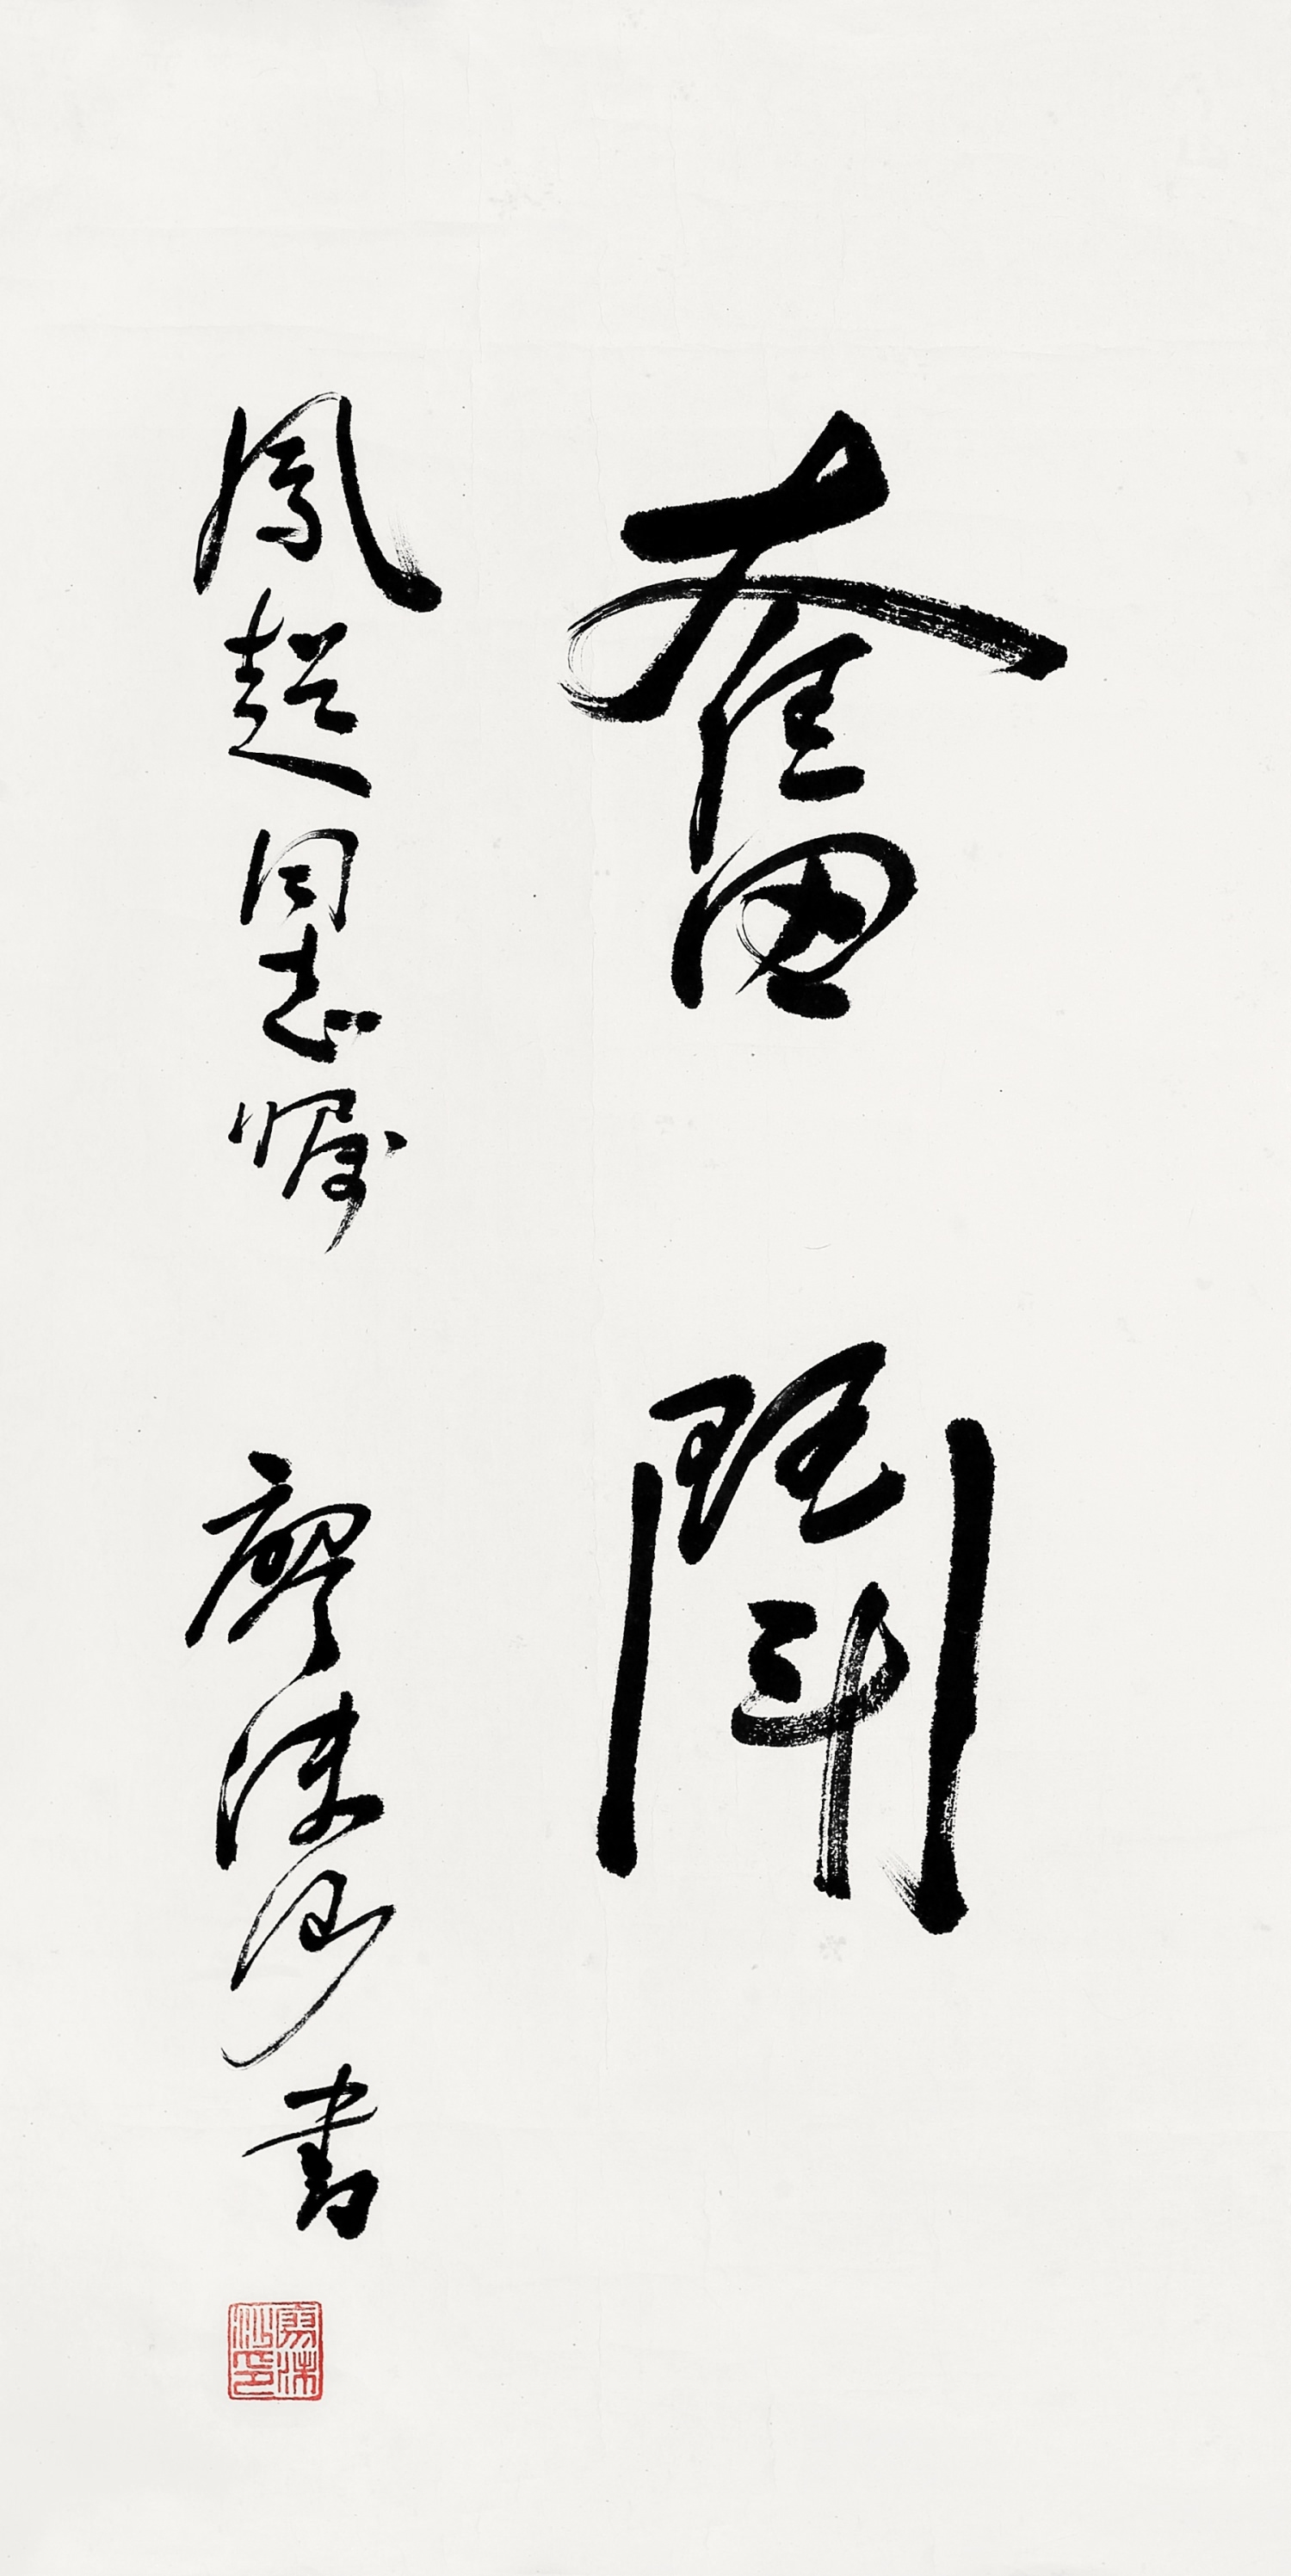 奮鬪
鳳超同志嘱 廖沫沙書
廖沫沙印